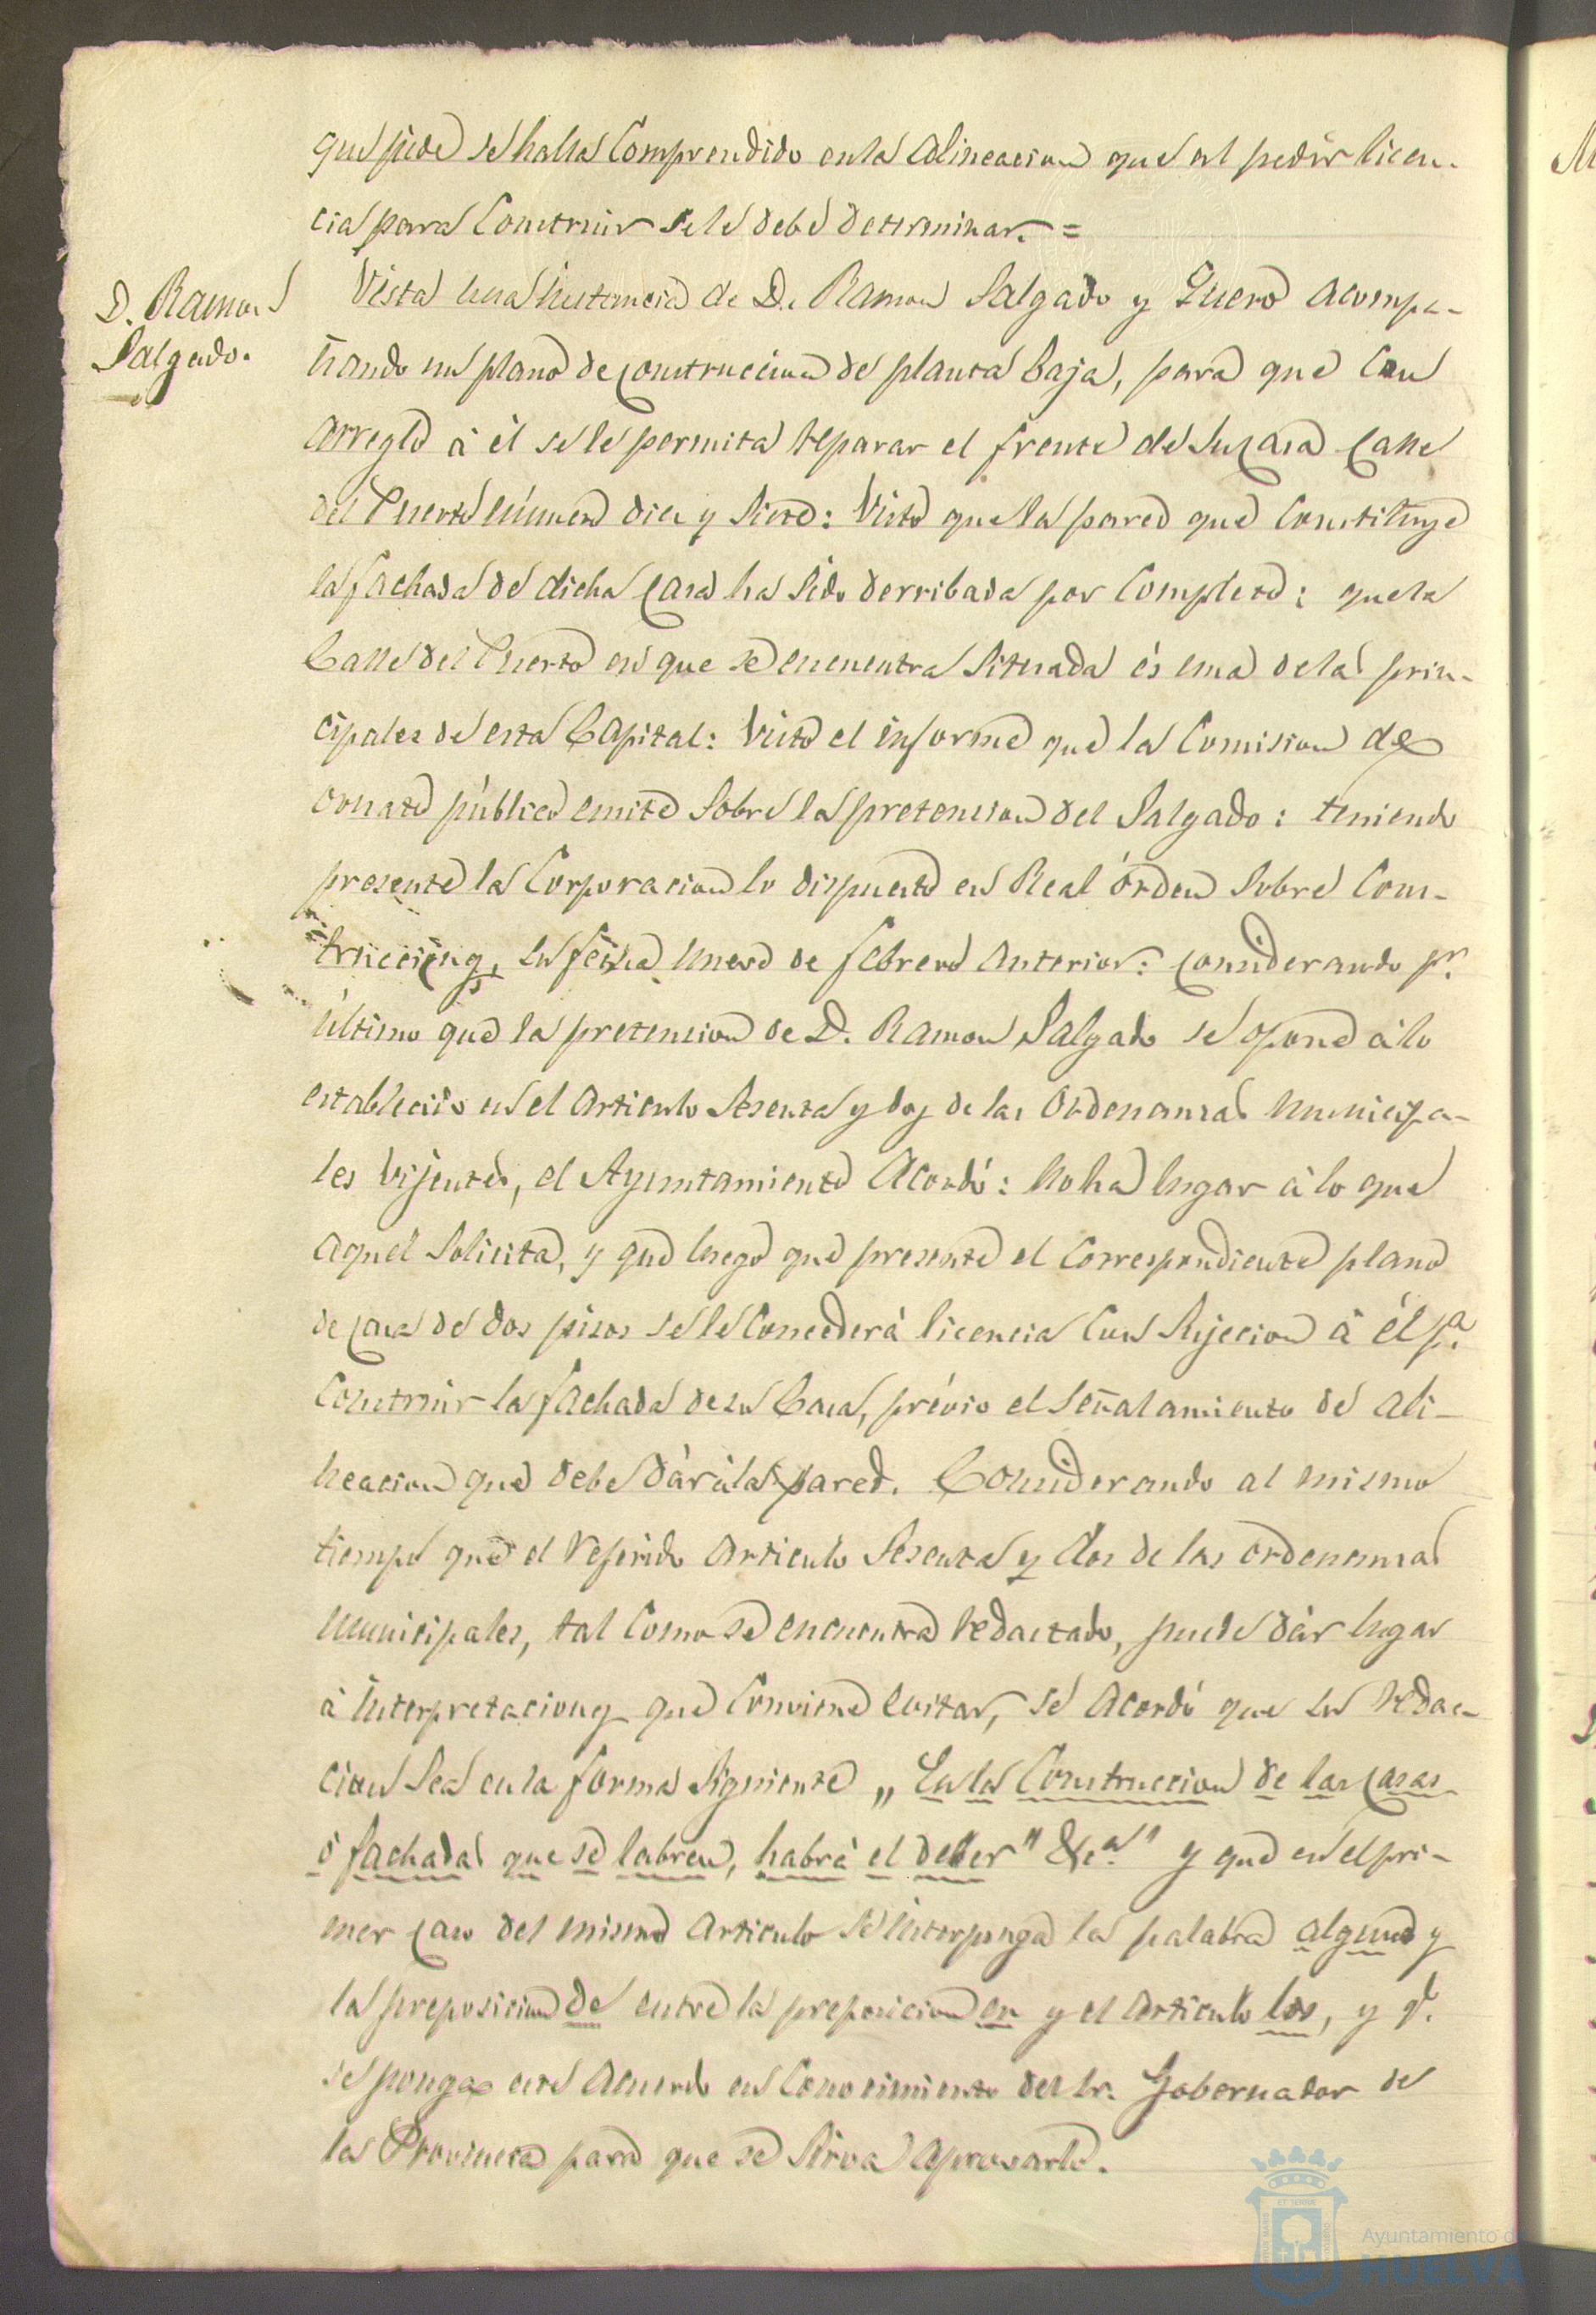 que pide se halla comprendido en la alineacion que al pedir licen-
cia para construir se le debe determinar. =
D. Ramon
Salgado.
Vista una instancia de D. Ramon Salgado y Quero acompa-
ñando un plano de construccion de planta baja, para que con
arreglo á él se le permita reparar el frente de su casa calle
del Puerto número diez y siete: Visto que la pared que constituye
la fachada de dicha casa ha sido derribada por completo: que la
Calle del Puerto en que se encuentra situada és una de las prin-
cipales de esta Capital: Visto el informe que la Comision de
ornato público emite sobre la pretension del Salgado: teniendo
presente la Corporacion lo dispuesto en Real órden sobre cons-
trucciones, su fecha nueve de febrero anterior: considerando pr.
último que la pretension de D. Ramon Salgado se opone á lo
establecido en el articulo sesenta y dos de las Ordenanzas municipa-
les vijentes, el Ayuntamiento Acordó: No ha lugar á lo que
aquel solicita, y que luego que presente el correspondiente plano
de casa de dos pisos se le concederá licencia con sujecion á él pa.
construir la fachada de su Casa, prévio el señalamiento de ali-
neacion que debe dár á la pared. Considerando al mismo
tiempo que el referido articulo sesenta y dos de las ordenanzas
municipales, tal como se encuentra redactado, puede dár lugar
á interpretaciones que conviene evitar, se acordó que su redac-
cion sea en la forma siguiente „ En la construccion de las casas
ó fachadas que se labren, habrá el deber" &a." y que en el pri-
mer caso del mismo articulo se interponga la palabra alguno y
la preposicion de entre la preposicion en y el articulo los, y q.
se ponga este acuerdo en conocimiento del Sr. Gobernador de
la Provincia para que se sirva aprobarlo.
Ayuntamiento de
HUELVA